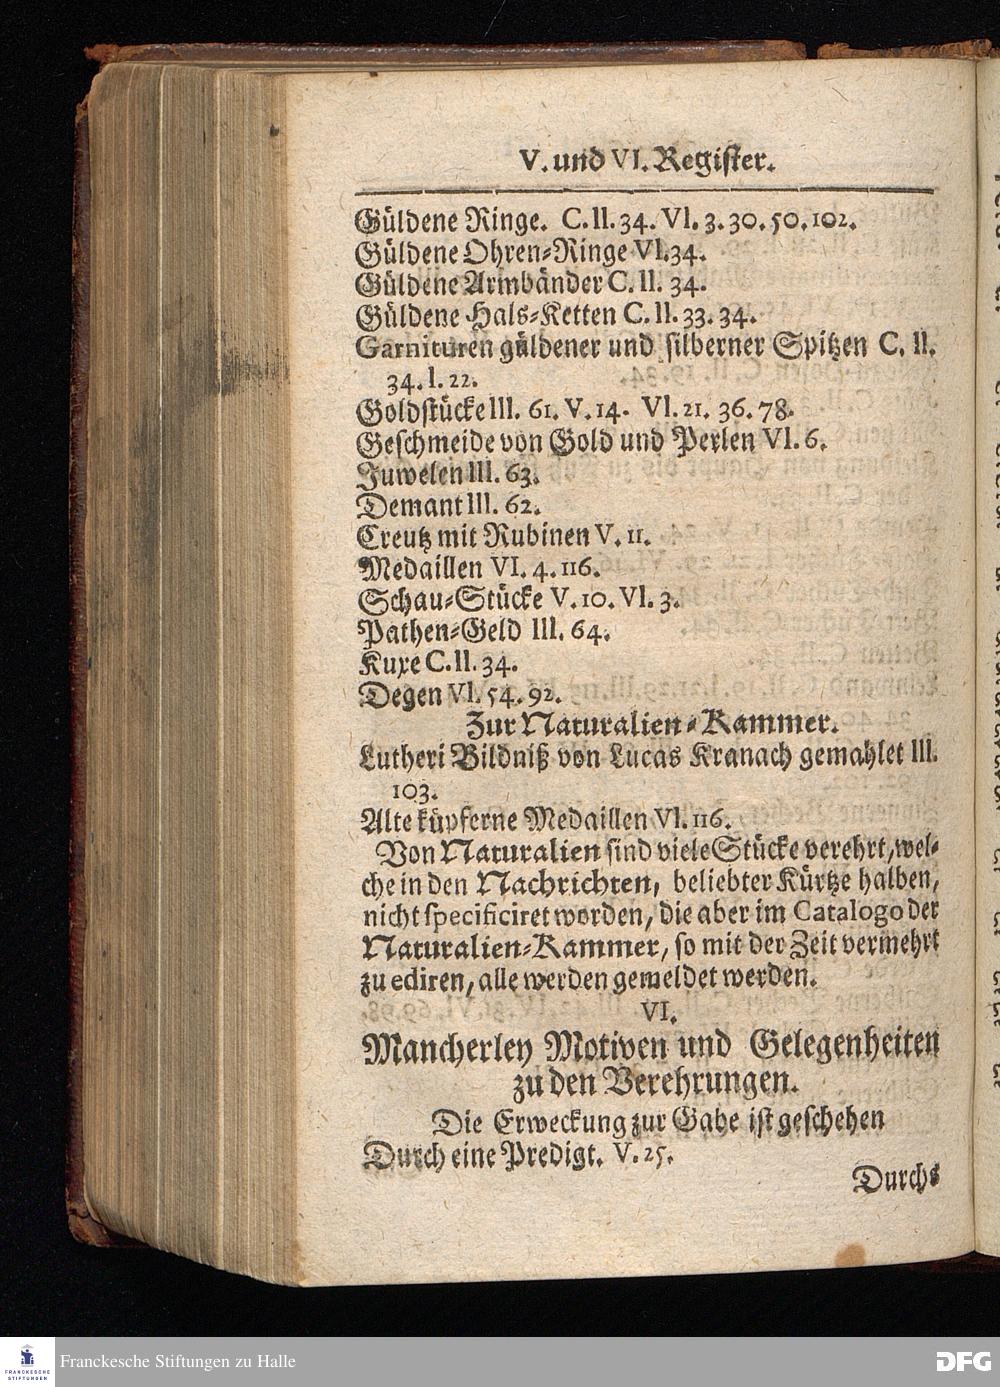 V. und VI. Register.
Güldene Ringe. C. II. 34. VI. 3. 30. 50. 102.
Güldene Ohren-Ringe VI. 34.
Güldene Armbänder C. II. 34.
Güldene Hals-Ketten C. II. 33. 34.
Garnituren güldener und silberner Spitzen C. II.
34. I. 22.
Goldstücke III. 61. V. 14. VI. 21. 36. 78.
Geschmeide von Gold und Perlen VI. 6.
Juwelen III. 63.
Demant III. 62.
Creutz mit Rubinen V. 11.
Medaillen VI. 4. 116.
Schau-Stücke V. 10. VI. 3.
Pathen-Geld III. 64.
Kuxe C. II. 34.
Degen VI. 54. 92.
Zur Naturalien-Kammer.
Lutheri Bildniß von Lucas Kranach gemahlet III.
103.
Alte küpferne Medaillen VI. 116.
Von Naturalien sind viele Stücke verehrt, wel-
che in den Nachrichten, beliebter Kürtze halben,
nicht specificiret worden, die aber im Catalogo der
Naturalien-Kammer, so mit der Zeit vermehrt
zu ediren, alle werden gemeldet werden.
VI.
Mancherley Motiven und Gelegenheiten
zu den Verehrungen.
Die Erweckung zur Gabe ist geschehen
Durch eine Predigt. V. 25.
Durchs
FRANCKESCHE
STIFTUNGEN
Franckesche Stiftungen zu Halle
DFG